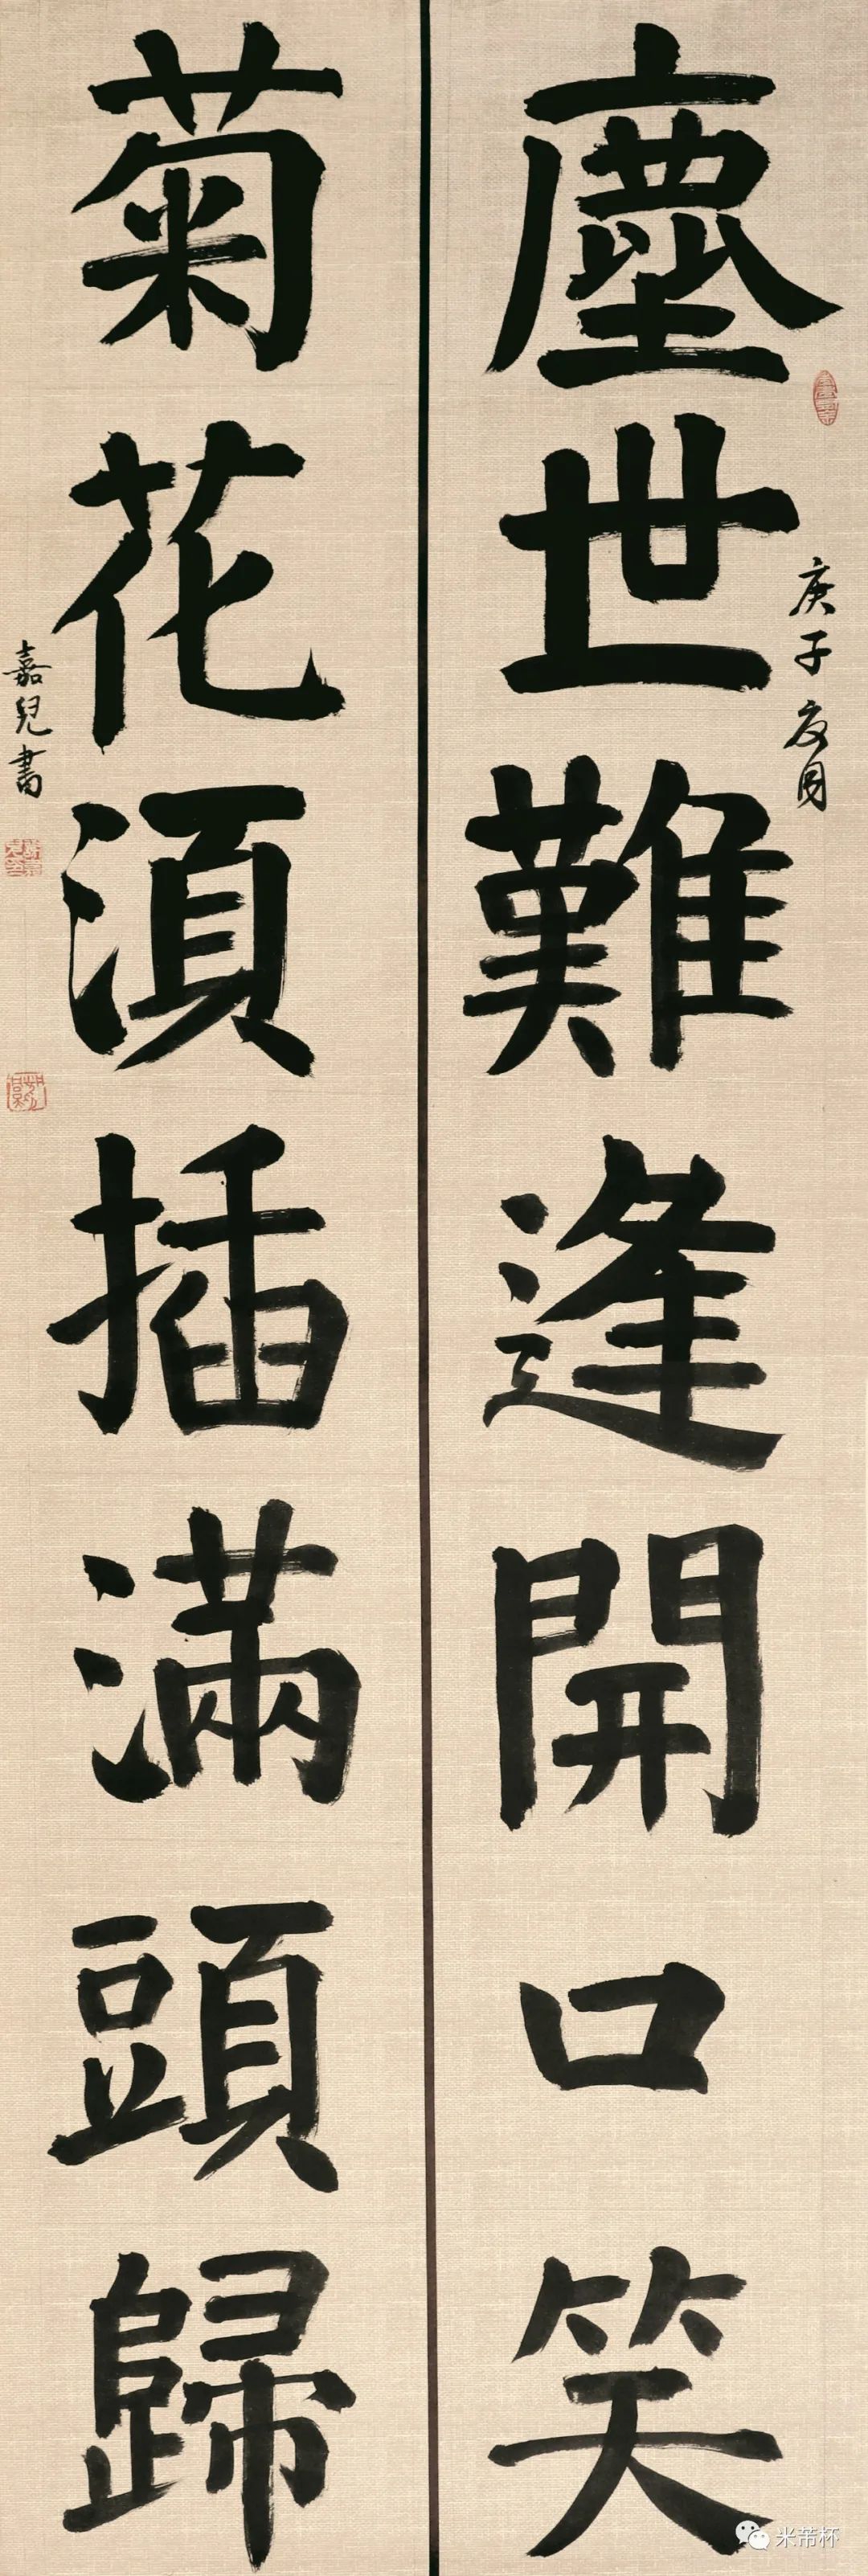 塵世難逢開口笑
庚子夏月
菊花須插滿頭歸
嘉兒書
米芾杯